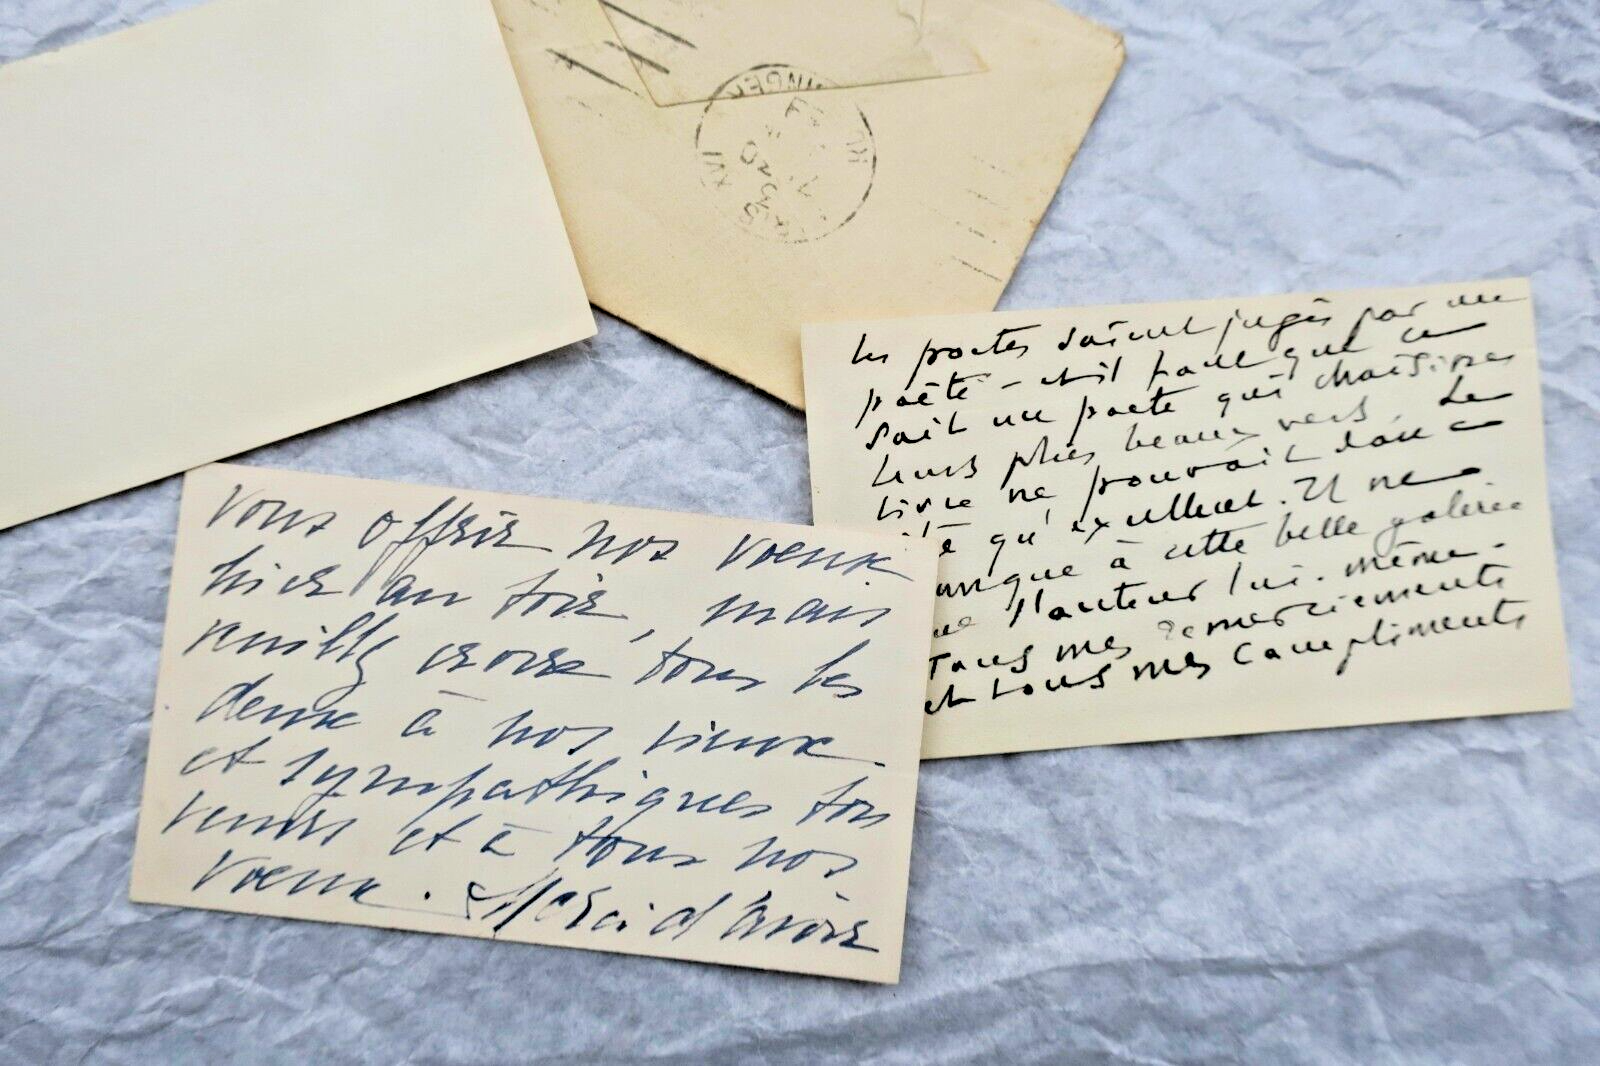 vous offrir nos voeux
hier au soir, mais
veuillez croire tous les
deux à nos vieux
et sympathiques sou
venirs et à tous nos
voeux. Merci d'avoir
les poètes soient jugés par un
poète - et il faut que ce
soit un poète qui choisisse
leurs plus beaux vers. Le
livre ne pouvait donc
qu'excellent. Il ne
manque à cette belle galerie
que l'auteur lui-même.
Tous mes remerciements
et tous mes compliments
XVI